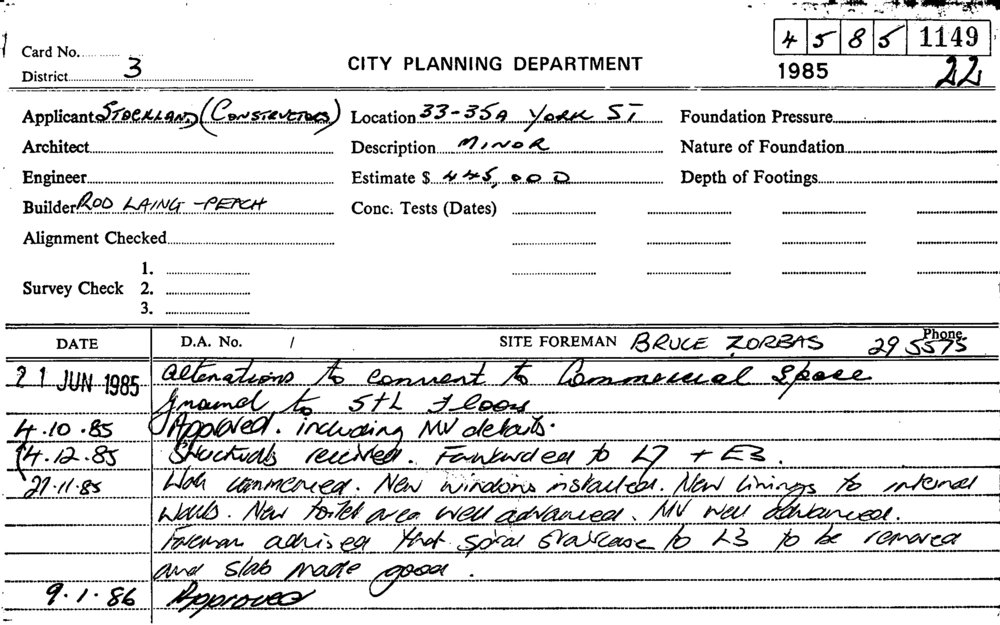 4 5 8 5 1149
Card No.
CITY PLANNING DEPARTMENT
1985
22
District 3
Applicant STOCKLAND (CONSTRUCTORS) Location 33-35A YORK ST Foundation Pressure
Architect Description MINOR Nature of Foundation
Engineer Estimate $ 445,000 Depth of Footings
Builder ROD LAING-PEACH Conc. Tests (Dates)
Alignment Checked
1.
Survey Check 2.
3.
DATE D.A. No. / SITE FOREMAN BRUCE ZORBAS Phone 29 5575
21 JUN 1985 alterations to convert to Commercial Space
ground to 5th floors
4.10.85 Approved. including MV details.
4.12.85 Structurals received. Forwarded to L7 + E3.
27.11.85 Work commenced. New windows installed. New linings to internal
walls. New toilet area well advanced. MV well advanced.
Foreman advised that spiral staircase to L3 to be removed
and slab made good.
9.1.86 Approved